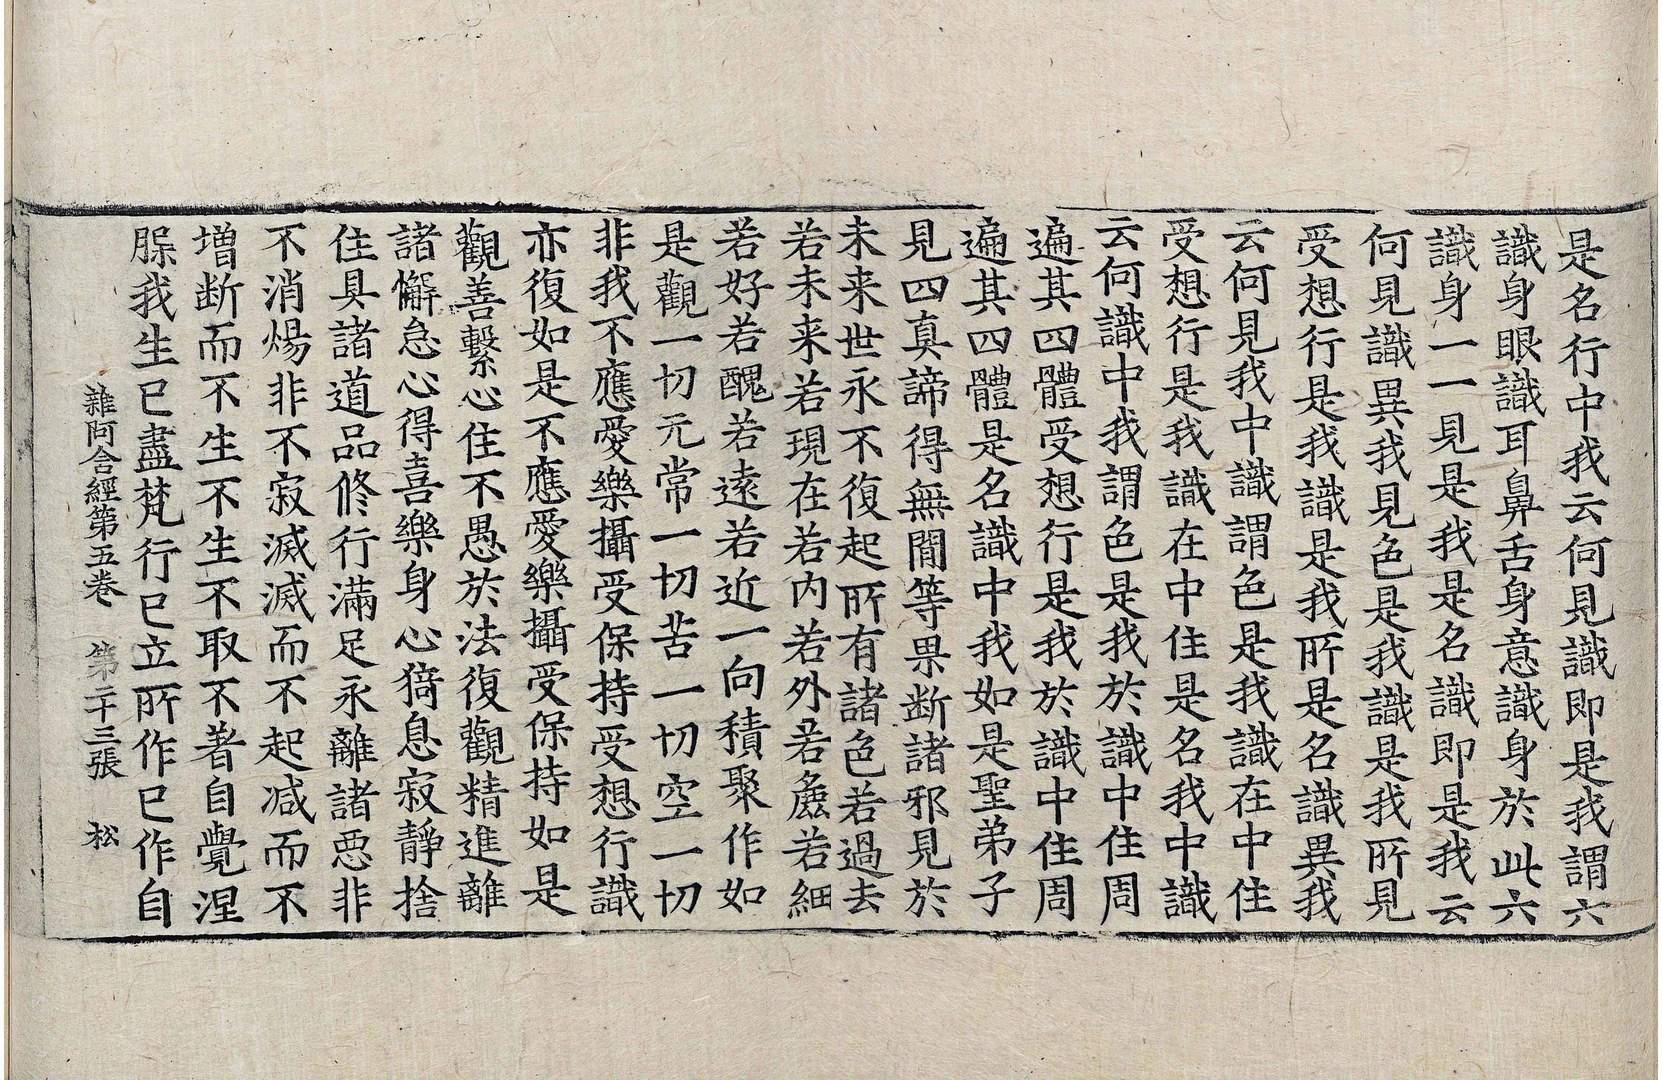 是名行中我云何見識即是我謂六
識身眼識耳鼻舌身意識身於此六
識身一一見是我是名識即是我云
何見識異我見色是我識是我所見
受想行是我識是我所是名識異我
云何見我中識謂色是我識在中住
受想行是我識在中住是名我中識
云何識中我謂色是我於識中住周
遍其四體受想行是我於識中住周
遍其四體是名識中我如是聖弟子
見四真諦得無閒等果断諸邪見於
未来世永不復起所有諸色若過去
若未来若現在若内若外若麁若細
若好若醜若遠若近一向積聚作如
是觀一切无常一切苦一切空一切
非我不應愛樂攝受保持受想行識
亦復如是不應愛樂攝受保持如是
觀善繫心住不愚於法復觀精進離
諸懈怠心得喜樂身心猗息寂静捨
住具諸道品修行滿足永離諸悪非
不消煬非不寂滅滅而不起减而不
增断而不生不生不取不著自覺涅
槃我生已盡梵行已立所作已作自
雜阿含經第五卷 第二十三張 松